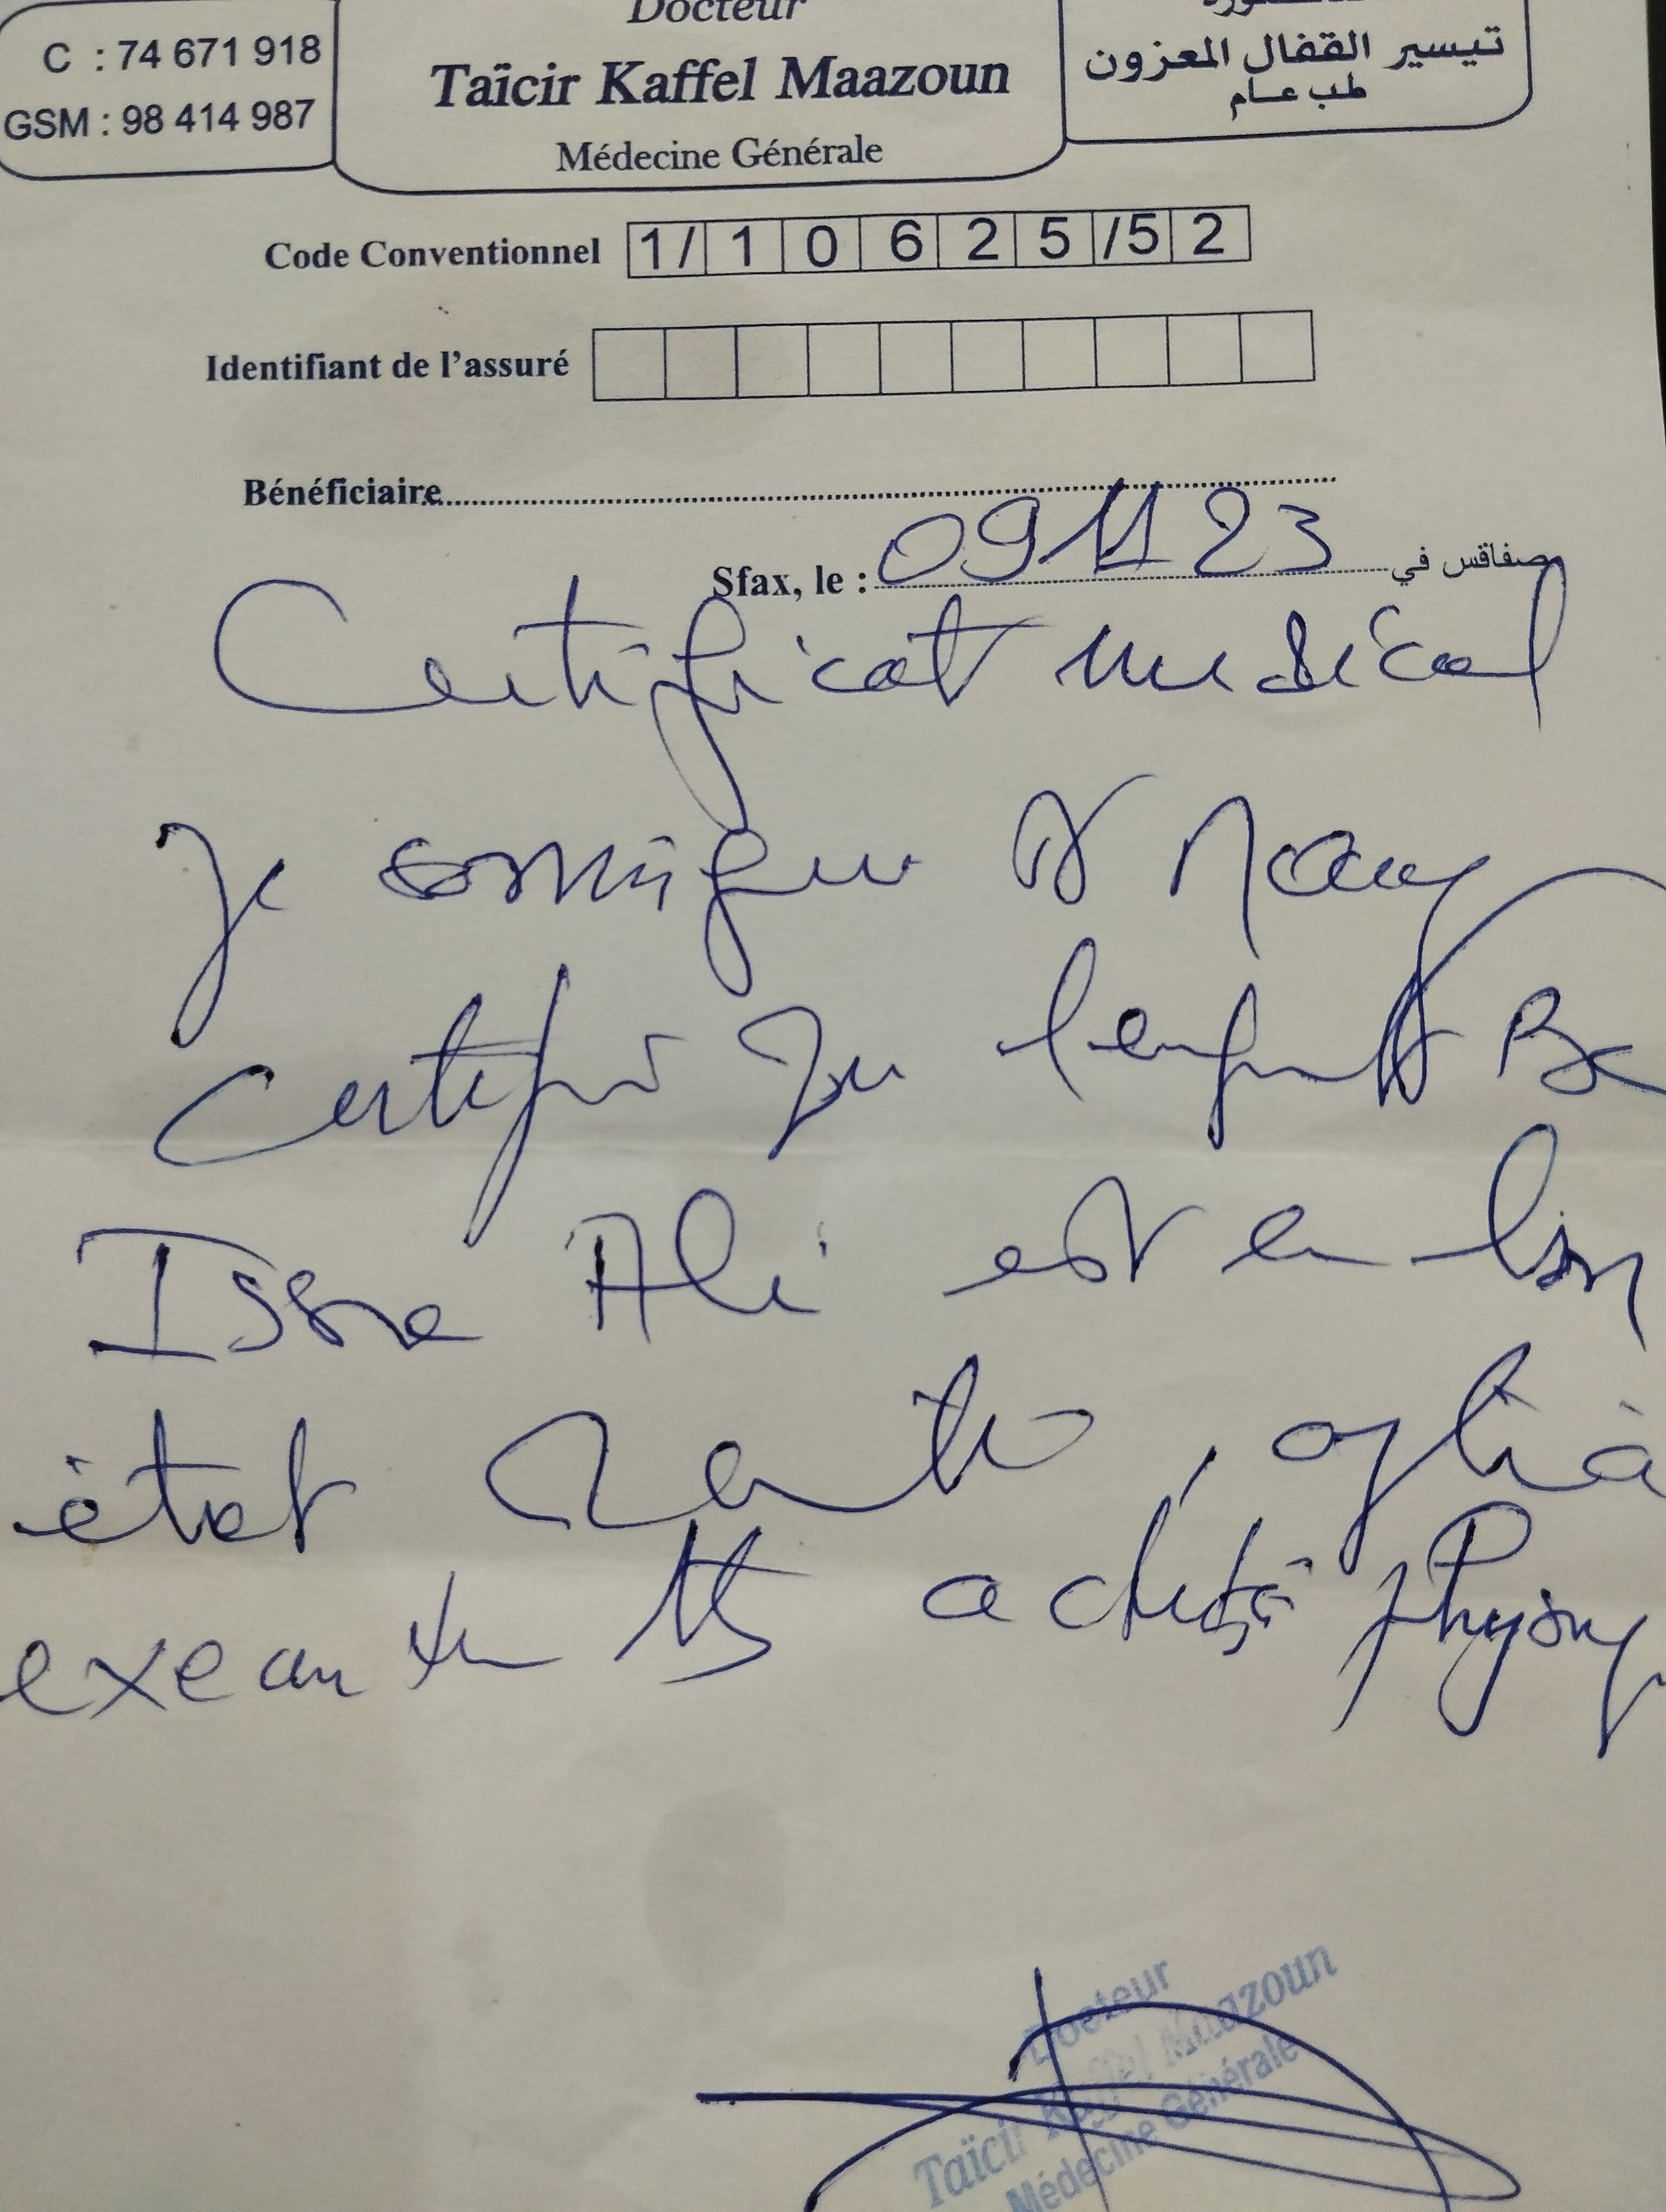 Docteur
Taïcir Kaffel Maazoun
Médecine Générale
C : 74 671 918
GSM : 98 414 987
تيسير القفال المعزون
طب عام
Code Conventionnel 1/ 1 0 6 2 5 /5 2
Identifiant de l'assuré
Bénéficiaire
Sfax, le : 09 11 23 صفاقس في
Certificat médical
Je soussigné Dr
certifie que l'enfant Be
Issa Ali est en bon
état santé, apte à
exercer activité physiq
Docteur
Taïcir Kaffel Maazoun
Médecine Générale